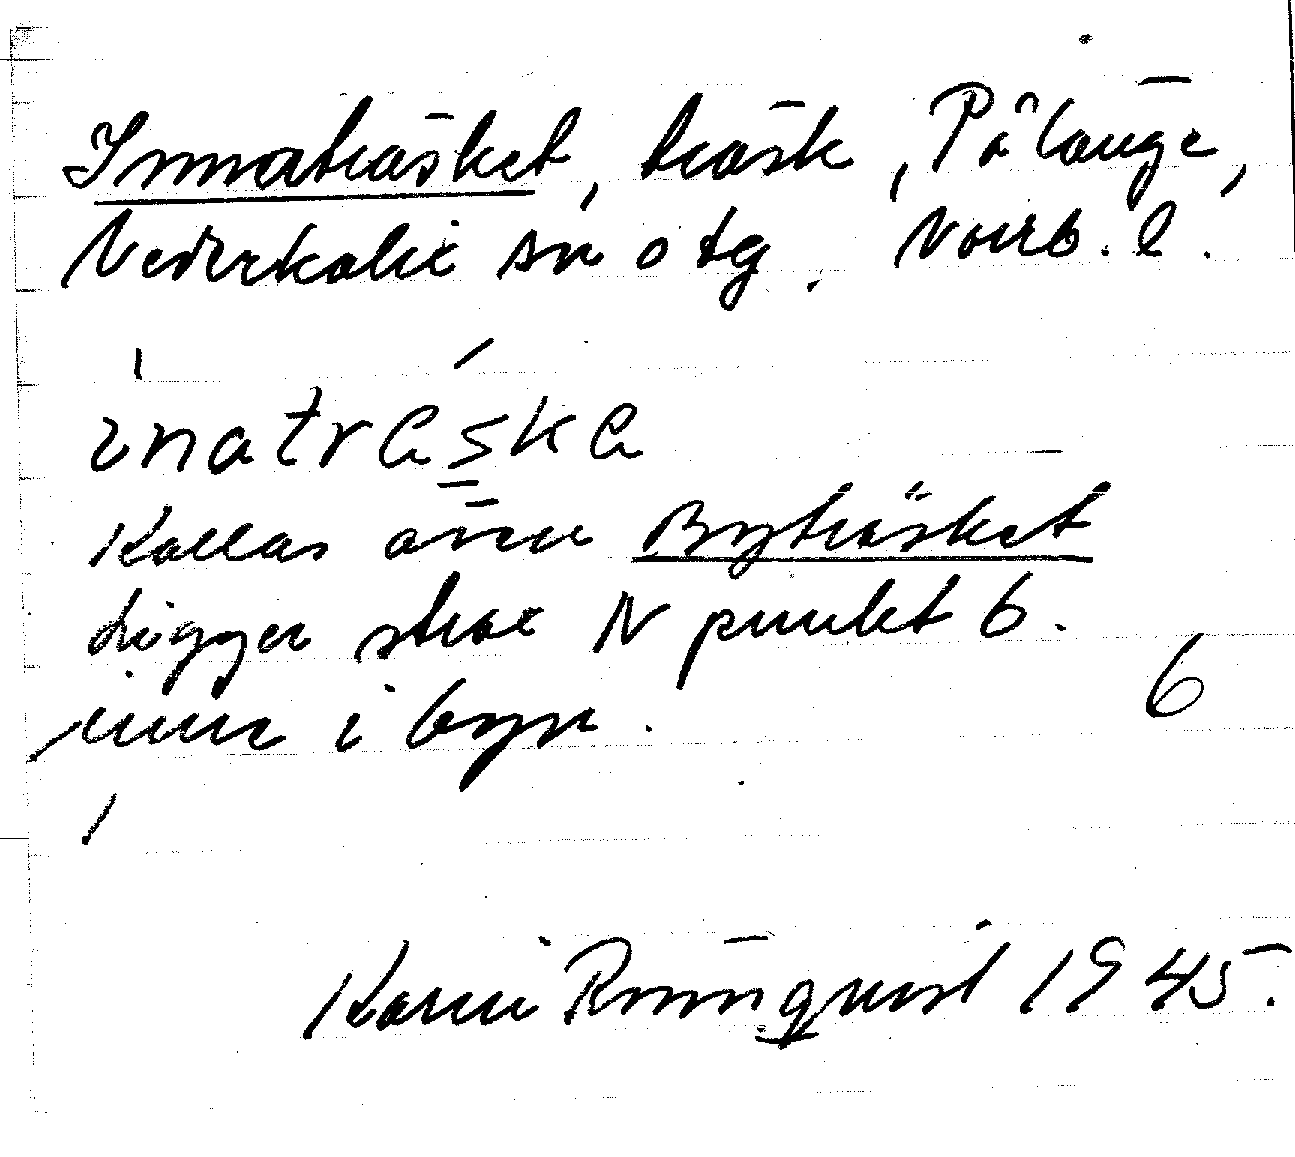 Innaträsket, träsk, Pålänge,
Nederkalix sn o tg. Norrb. l.
ìnatráska
Kallas även Byträsket
Ligger strax N punkt 6.
inne i byn.
6
Karin Rönnqvist 1945.